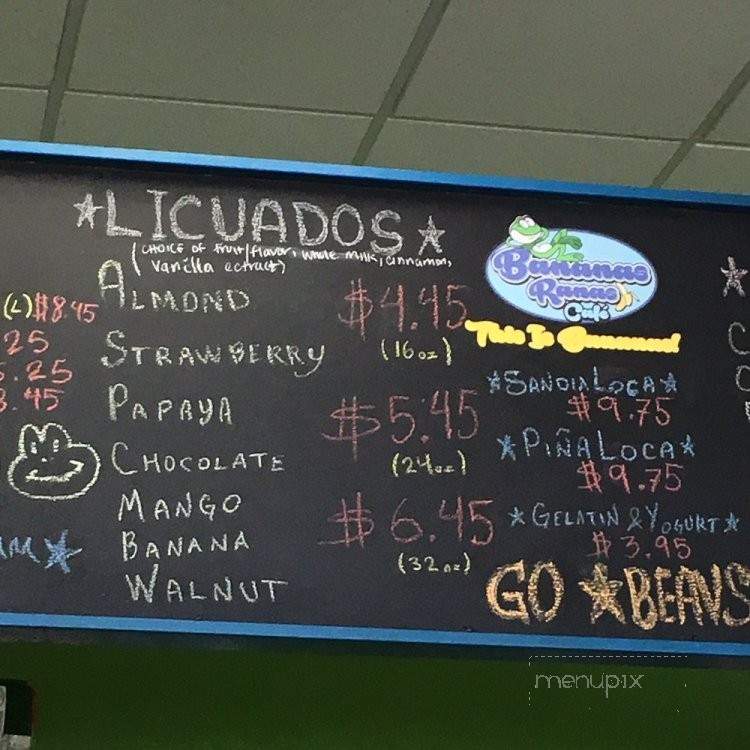 ★LICUADOS★
(CHOICE OF fruit/flavor, whole milk, cinnamon,
Vanilla extract)
ALMOND
STRAWBERRY
PAPAYA
CHOCOLATE
MANGO
BANANA
WALNUT
$4.45
(16oz)
$5.45
(24oz)
$6.45
(32oz)
(L)$8.45
25
5.25
8.45
Bananas
Ranas
Café
This Is Bananas!
★SANDIA LOCA★
$9.75
★PIÑA LOCA★
$9.75
★GELATIN & YOGURT★
$3.95
GO ★BEAVS
menupix